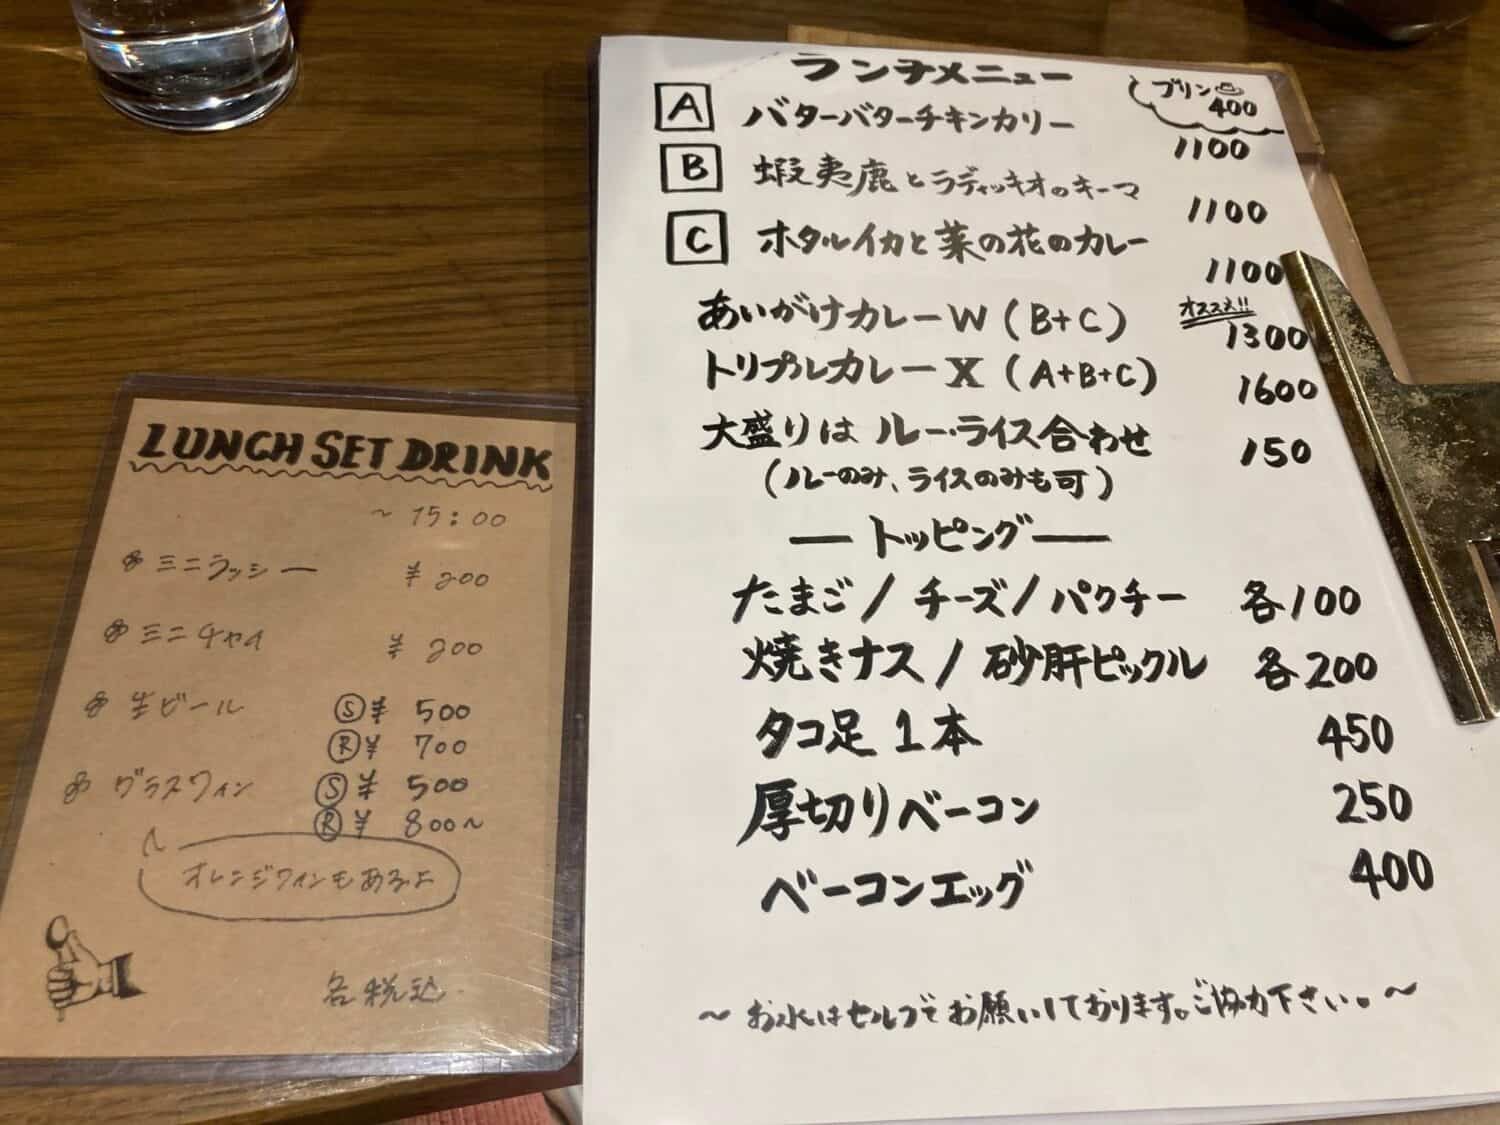 LUNCH SET DRINK
~ 15:00
ミニラッシー ¥200
ミニチャイ ¥200
生ビール Ⓢ¥ 500
Ⓡ¥ 700
グラスワイン Ⓢ¥ 500
Ⓡ¥ 800~
オレンジワインもあるよ
各税込
ランチメニュー
プリン
400
A バターバターチキンカリー
1100
B 蝦夷鹿とラディッキオのキーマ
1100
C ホタルイカと菜の花のカレー
1100
あいがけカレーW (B+C) オススメ!! 1300
トリプルカレーX (A+B+C) 1600
大盛りは ルー・ライス合わせ 150
(ルーのみ、ライスのみも可)
— トッピング —
たまご / チーズ / パクチー 各100
焼きナス / 砂肝ピックル 各200
タコ足 1本 450
厚切りベーコン 250
ベーコンエッグ 400
~ お水はセルフでお願いしております。ご協力下さい。~